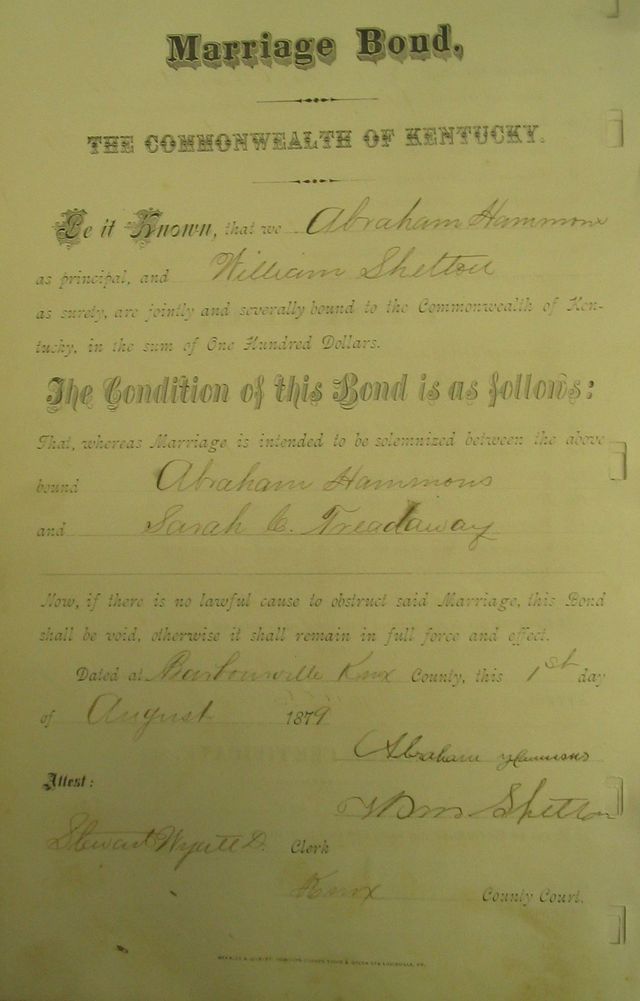 Marriage Bond,
THE COMMONWEALTH OF KENTUCKY.
Be it Known, that we Abraham Hammons
as principal, and William Shelton
as surety, are jointly and severally bound to the Commonwealth of Ken-
tucky, in the sum of One Hundred Dollars.
The Condition of this Bond is as follows:
That, whereas Marriage is intended to be solemnized between the above
bound Abraham Hammons
and Sarah C. Treadaway
Now, if there is no lawful cause to obstruct said Marriage, this Bond
shall be void, otherwise it shall remain in full force and effect.
Dated at Barbourville Knox County, this 1st day
of August 1879
Abraham Hammons
Attest:
Wm Shelton
Stewart Wyatt D. Clerk
Knox County Court.